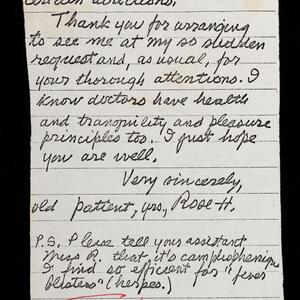 Thank you for arranging
to see me at my so sudden
request and, as usual, for
your thorough attentions. I
know doctors have health
and tranquility and pleasure
principles too. I just hope
you are well.
Very sincerely,
old patient, yrs, Rose H.
P.S. Please tell your assistant
Miss R. that, it's camphophenique
I find so efficient for "fever
blisters" (herpes.)